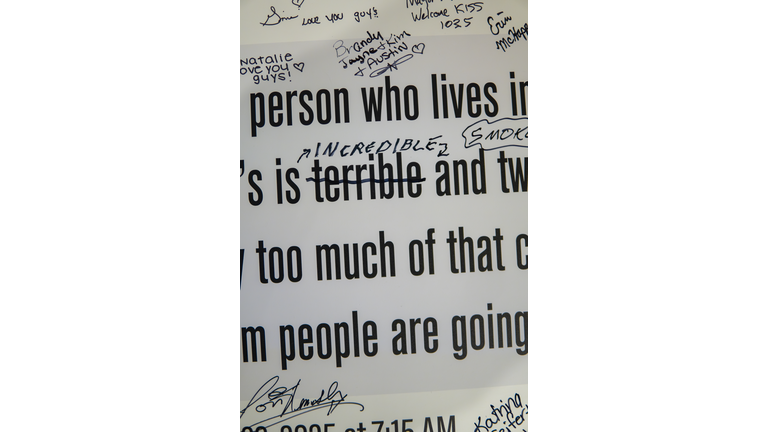 love you guys
Welcome KISS
1025
Erin
Natalie
ove you
guys!
Brandy
Jayne + Kim
+ Austin
person who lives in
INCREDIBLE
SMOK
's is terrible and tw
too much of that c
m people are going
2025 at 7:15 AM
Katrina